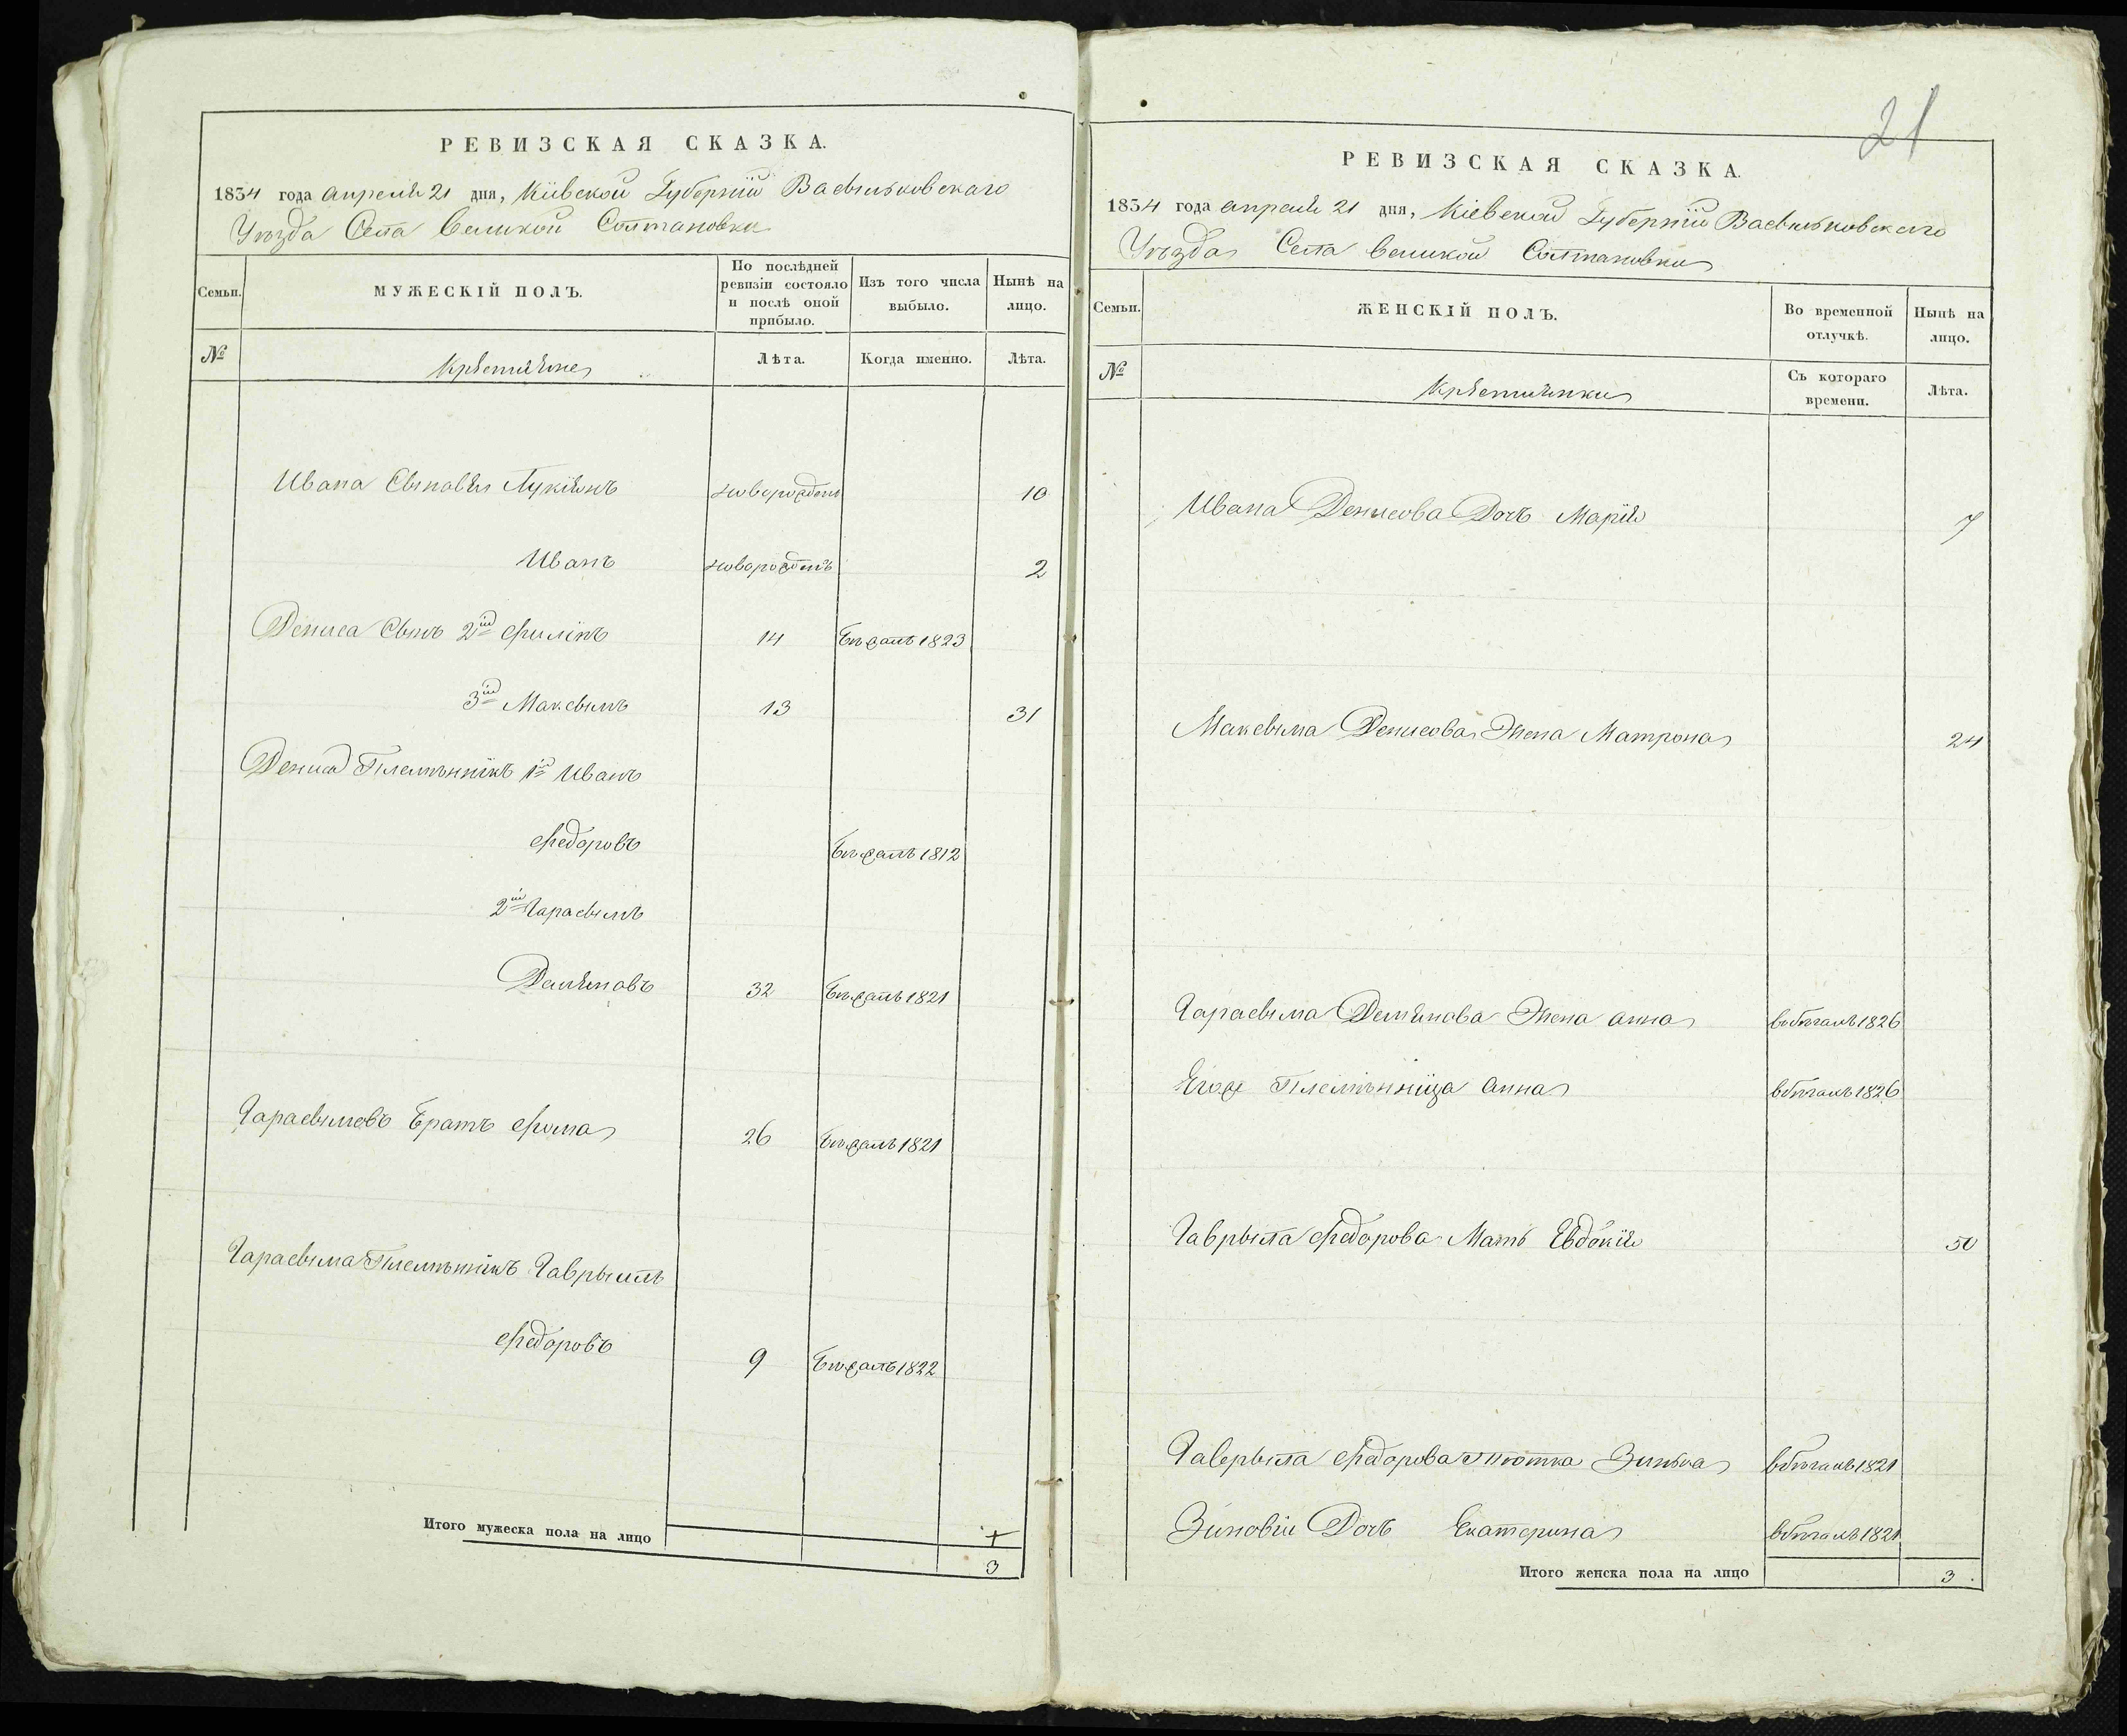 РЕВИЗСКАЯ СКАЗКА.
1834 года апреля 21 дня, Кіевской Губерніи Васыльковскаго
Уѣзда Села Великой Солтановки
Семьи.
МУЖЕСКІЙ ПОЛЪ.
По послѣдней ревизіи состояло и послѣ оной прибыло.
Изъ того числа выбыло.
Нынѣ на лицо.
№
Крестяне
Лѣта.
Когда именно.
Лѣта.
Ивана Сыновья Лукіянъ новорожденъ 10
Иванъ новорожденъ 2
Дениса Сынъ 2й Филіпъ 14 Бѣжалъ 1823
3й Максымъ 13 31
Дениса Племѣннікъ 1й Иванъ
Федоровъ Бѣжалъ 1812
2й Гарасымъ
Демяновъ 32 Бѣжалъ 1821
Гарасымовъ Братъ Фома 26 Бѣжалъ 1821
Гарасыма Племѣннікъ Гаврыилъ
Федоровъ 9 Бѣжалъ 1822
Итого мужеска пола на лицо
3
21
РЕВИЗСКАЯ СКАЗКА.
1834 года апреля 21 дня, Кіевской Губерніи Васыльковскаго
Уѣзда Села Великой Солтановки
Семьи.
ЖЕНСКІЙ ПОЛЪ.
Во временной отлучкѣ.
Нынѣ на лицо.
№
Крестянки
Съ котораго времени.
Лѣта.
Ивана Денисова Дочъ Марія 7
Максыма Денисова Жена Матрона 24
Гарасыма Демянова Жена Анна вбѣгахъ 1826
Егоже Племѣнніца Анна вбѣгахъ 1826
Гаврыла Федорова Мать Евдокія 50
Гаврыла Федорова тіотка Зинька вбѣгахъ 1821
Зиновіи Дочъ Екатерина вбѣгахъ 1821
Итого женска пола на лицо 3